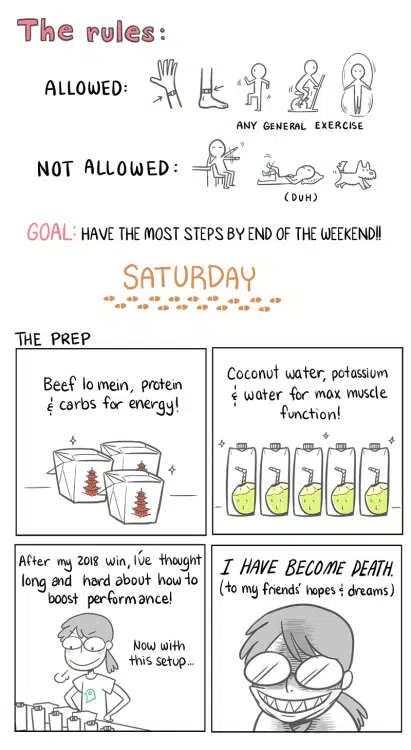 The rules:
ALLOWED:
ANY GENERAL EXERCISE
NOT ALLOWED:
(DUH)
GOAL: HAVE THE MOST STEPS BY END OF THE WEEKEND!!
SATURDAY
THE PREP
Beef lo mein, protein
& carbs for energy!
Coconut water, potassium
& water for max muscle
function!
After my 2018 win, I've thought
long and hard about how to
boost performance!
Now with
this setup...
I HAVE BECOME DEATH.
(to my friends' hopes & dreams)